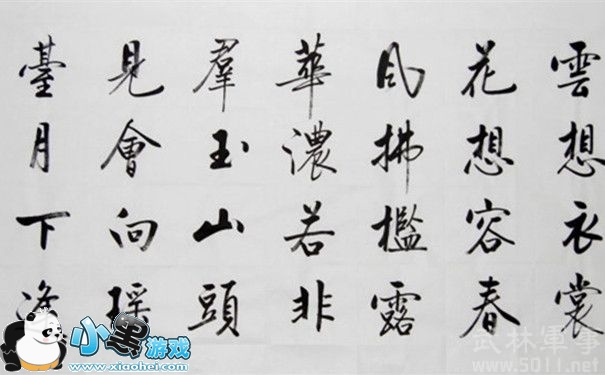 雲想衣裳
花想容春
風拂檻露
華濃若非
羣玉山頭
見會向瑤
臺月下逢
小黑游戏
www.xiaohei.com
武林軍事
www.5011.net